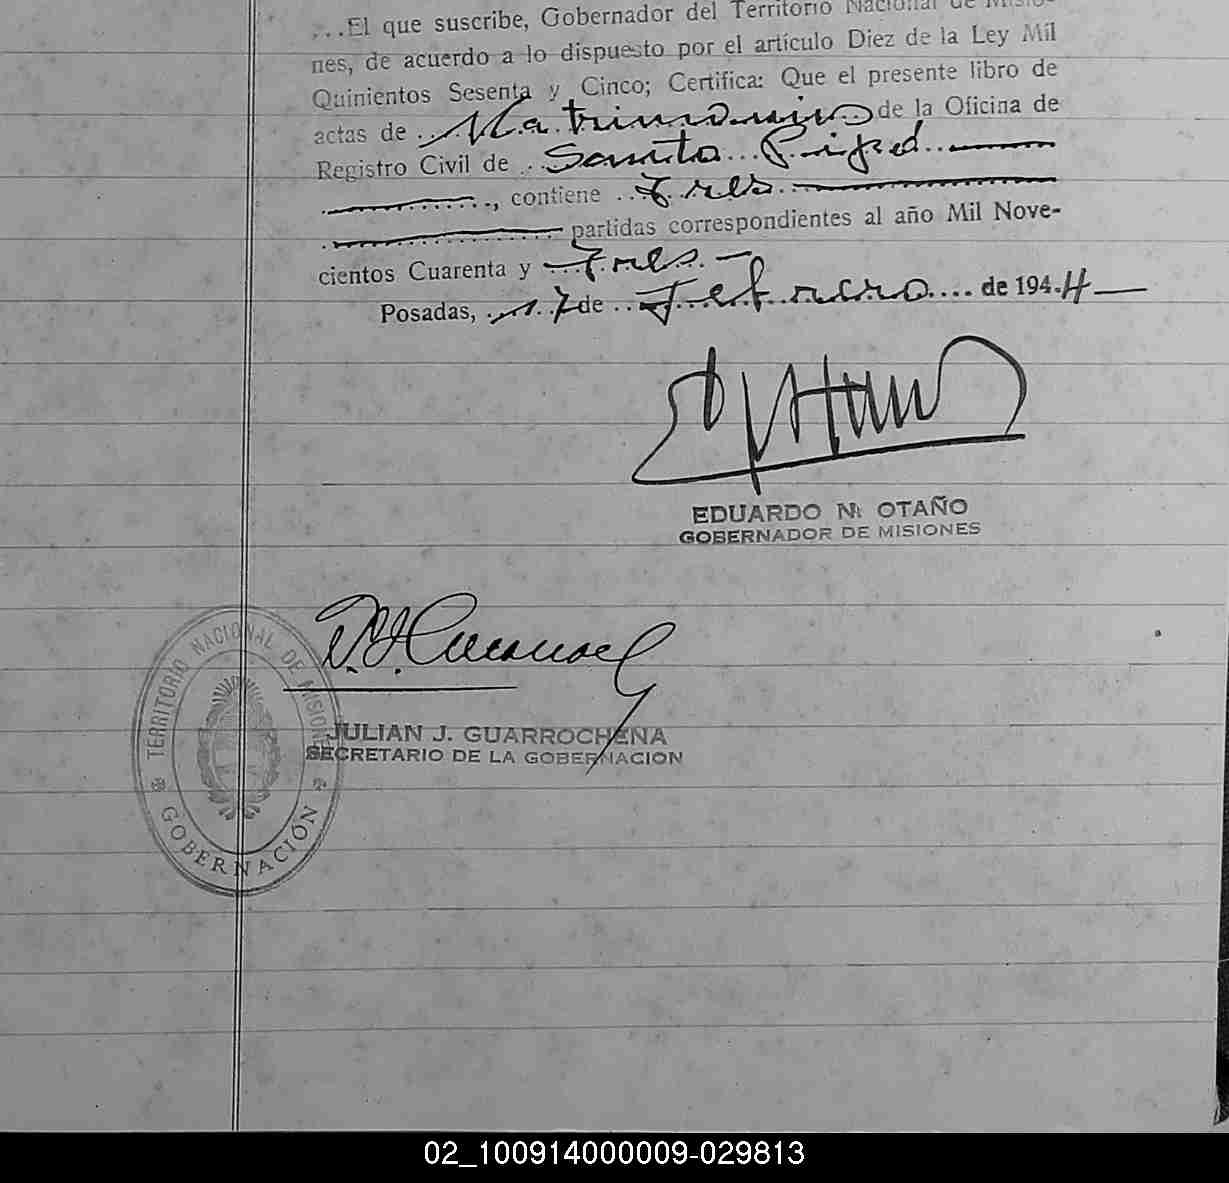 ...El que suscribe, Gobernador del Territorio Nacional de Misio-
nes, de acuerdo a lo dispuesto por el artículo Diez de la Ley Mil
Quinientos Sesenta y Cinco; Certifica: Que el presente libro de
actas de ..Matrimonios de la Oficina de
Registro Civil de ...Santo Pipó..
..........., contiene ..Tres.
................ partidas correspondientes al año Mil Nove-
cientos Cuarenta y ...Tres.-
Posadas, ..17 de ..Febrero.... de 194.4
EDUARDO N. OTAÑO
GOBERNADOR DE MISIONES
TERRITORIO NACIONAL DE MISIONES
GOBERNACIÓN
JULIAN J. GUARROCHENA
SECRETARIO DE LA GOBERNACION
02_100914000009-029813